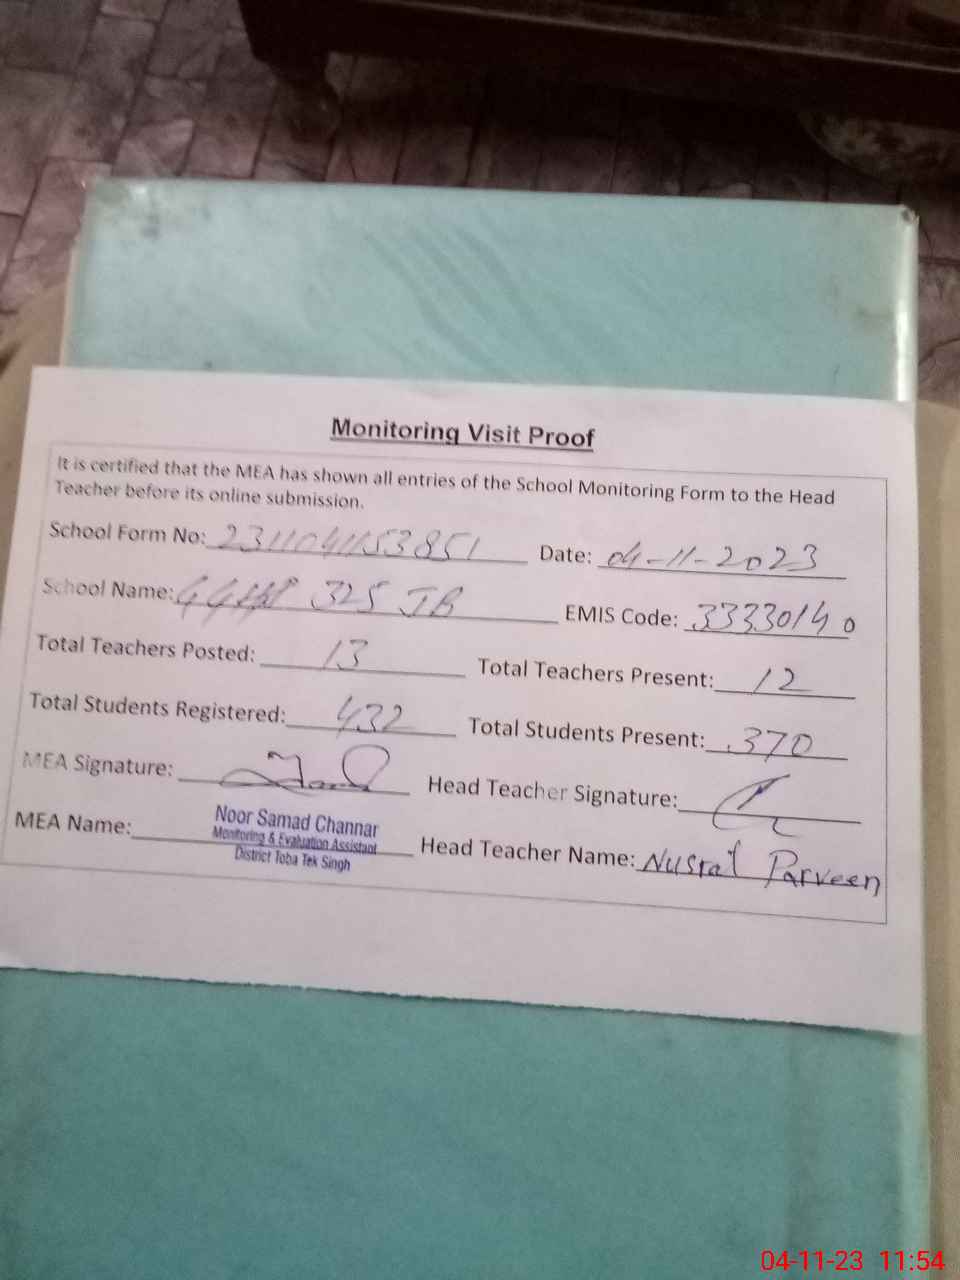 Monitoring Visit Proof
It is certified that the MEA has shown all entries of the School Monitoring Form to the Head
Teacher before its online submission.
School Form No: 231104153851 Date: 04-11-2023
School Name: 325 JB EMIS Code: 33330140
Total Teachers Posted: 13 Total Teachers Present: 12
Total Students Registered: 432 Total Students Present: 370
MEA Signature: Head Teacher Signature:
MEA Name: Noor Samad Channar
Monitoring & Evaluation Assistant
District Toba Tek Singh
Head Teacher Name: Nusrat Parveen
04-11-23 11:54